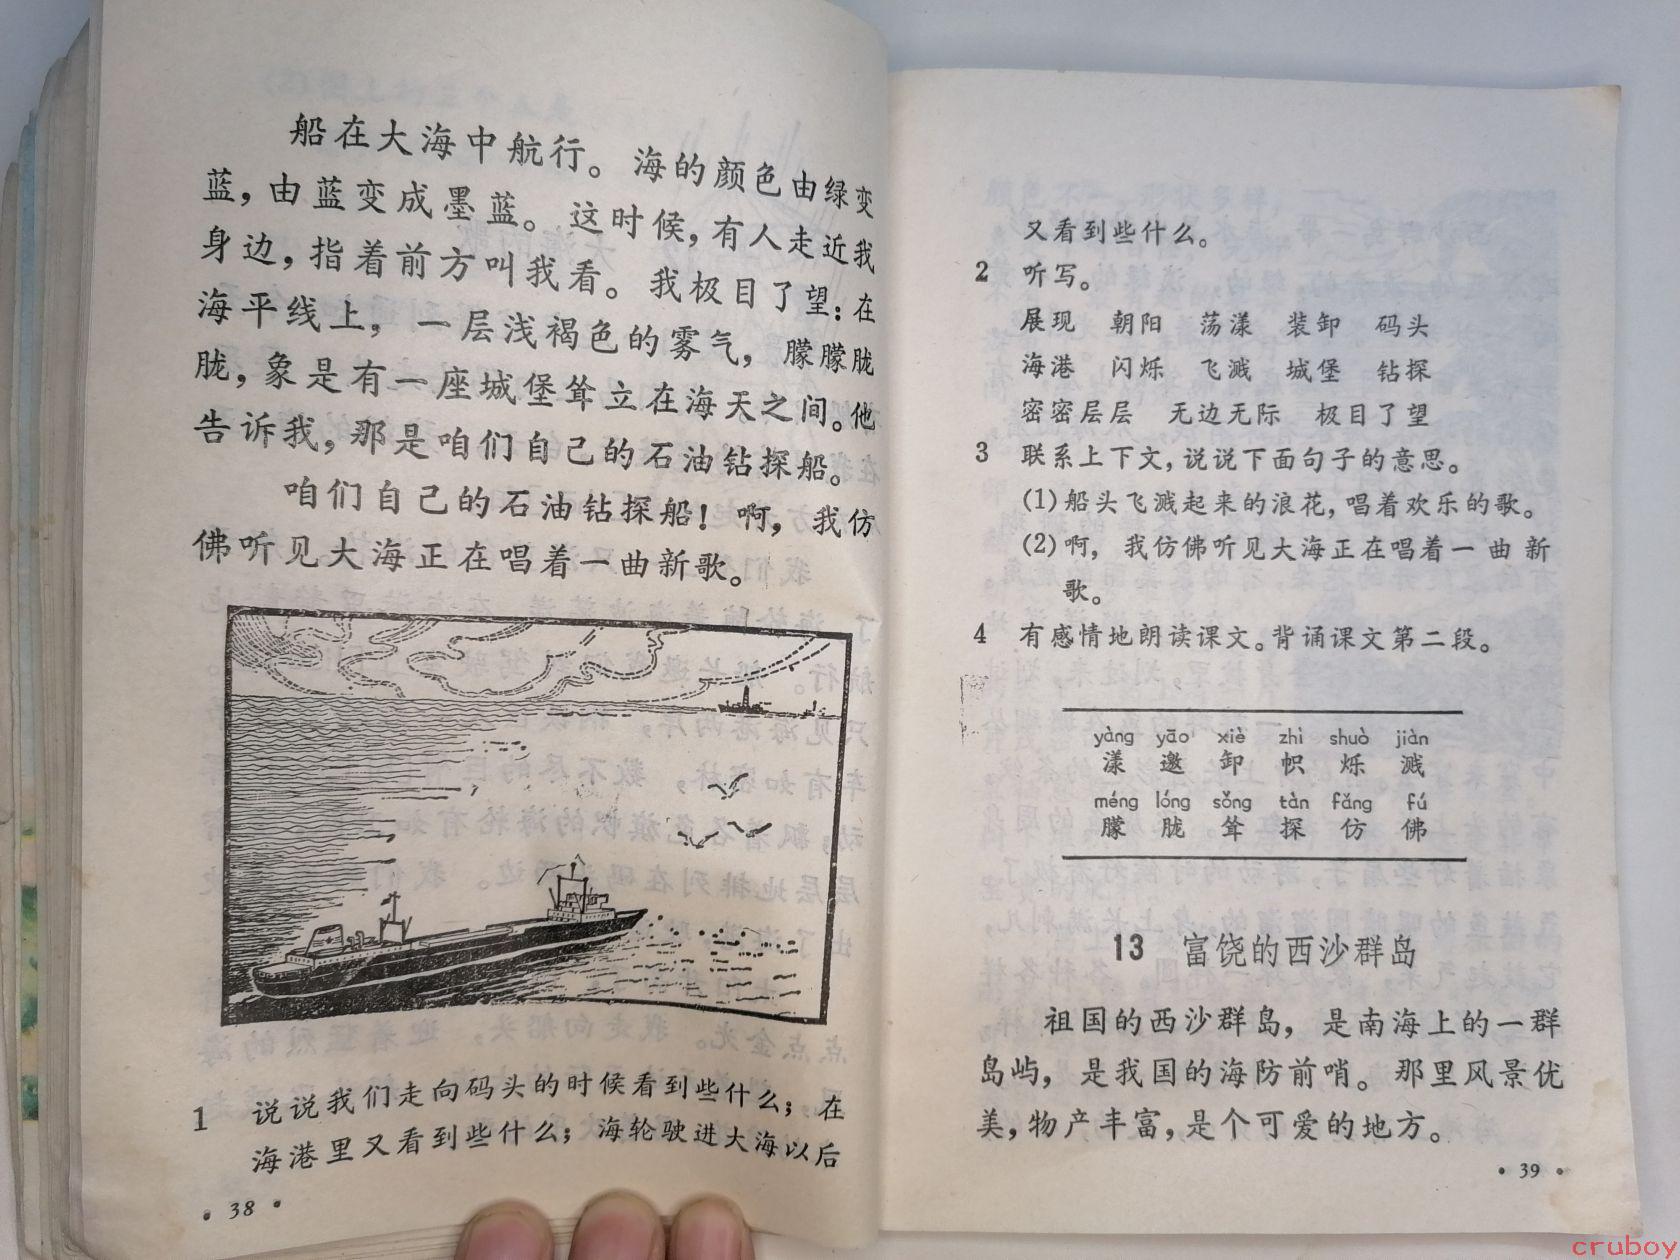 船在大海中航行。海的颜色由绿变
蓝，由蓝变成墨蓝。这时候，有人走近我
身边，指着前方叫我看。我极目了望：在
海平线上，一层浅褐色的雾气，朦朦胧
胧，象是有一座城堡耸立在海天之间。他
告诉我，那是咱们自己的石油钻探船。
咱们自己的石油钻探船！啊，我仿
佛听见大海正在唱着一曲新歌。
1 说说我们走向码头的时候看到些什么；在
海港里又看到些什么；海轮驶进大海以后
·38·
又看到些什么。
2 听写。
展现 朝阳 荡漾 装卸 码头
海港 闪烁 飞溅 城堡 钻探
密密层层 无边无际 极目了望
3 联系上下文，说说下面句子的意思。
(1)船头飞溅起来的浪花，唱着欢乐的歌。
(2)啊，我仿佛听见大海正在唱着一曲新
歌。
4 有感情地朗读课文。背诵课文第二段。
yàng yāo xiè zhì shuò jiàn
漾 邀 卸 帜 烁 溅
méng lóng sǒng tàn fǎng fú
朦 胧 耸 探 仿 佛
13 富饶的西沙群岛
祖国的西沙群岛，是南海上的一群
岛屿，是我国的海防前哨。那里风景优
美，物产丰富，是个可爱的地方。
·39·
cruboy